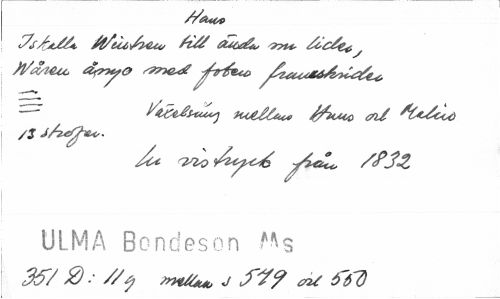 Hans
Iskalla Wintren till ända nu lider,
Wåren ånyo med foten framskrider
Växelsång mellan Hans och Malin
13 strofer.
Ur vistryck från 1832
ULMA Bondeson Ms
351 D: 11 g mellan s 549 och 550